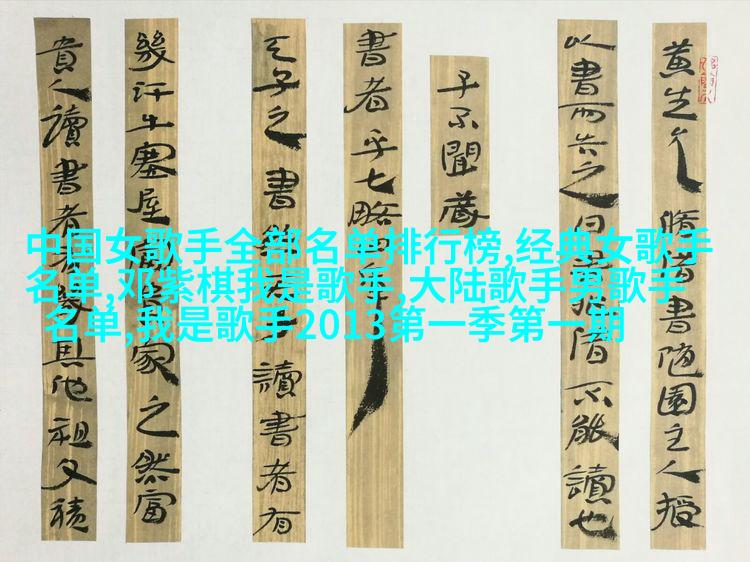 中国女歌手全部名单排行榜,经典女歌手
名单,邓紫棋我是歌手,大陆歌手男歌手
名单,我是歌手2013第一季第一期
黄生允脩借書隨園主人授
以書而告之曰書非借不能讀也
子不聞藏
書者乎七略四庫
天子之書然天子讀書者有
幾汗牛塞屋富貴家之然富
貴人讀書者有幾其他祖父積